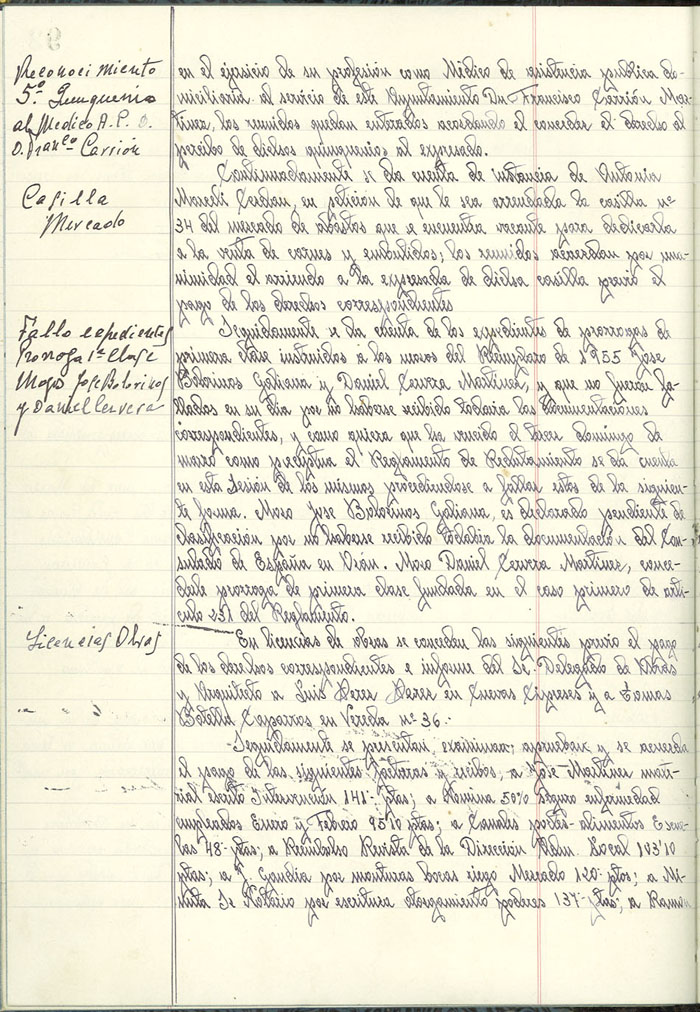 Reconocimiento
5º Quinquenio
al Medico A. P. D.
D. Franco Carrión
en el ejercicio de su profesión como Médico de asistencia publica do-
miciliaria al servicio de este Ayuntamiento Dn. Francisco Carrión Mar-
tinez, los reunidos quedan enterados acordando el conceder el derecho al
percibo de dichos quinquenios al expresado.
Casilla
Mercado
Continuadamente se da cuenta de instancia de Antonia
en petición de que le sea arrendada la casilla nº
34 del mercado de abastos que se encuentra vacante para dedicarla
a la venta de carnes y embutidos; los reunidos acuerdan por una-
nimidad el arriendo a la expresada de dicha casilla previo el
pago de los derechos correspondientes
Fallo expedientes
Prorroga 1ª Clase
Mozo Jose Bolorinos
y Daniel Cervera
Seguidamente se da cuenta de los expedientes de prorrogas de
primera clase instruidos a los mozos del Reemplazo de 1955 Jose
Bolorinos Galiana y Daniel Cervera Martinez, y que no fueron fa-
llados en su dia por no haberse recibido todavia las documentaciones
correspondientes, y como quiera que ha vencido el tercer domingo de
marzo como preceptua el Reglamento de Reclutamiento se da cuenta
en esta Sesión de los mismos procediendose a fallar estos de la siguien-
te forma. Mozo Jose Bolorinos Galiana, es declarado pendiente de
clasificación por no haberse recibido todabia la documentación del Con-
sulado de España en Orán. Mozo Daniel Cervera Martinez, conce-
derle prorroga de primera clase fundada en el caso primero de arti-
culo 231 del Reglamento.
Licencias Obras
En licencias de obras se conceden las siguientes previo el pago
de los derechos correspondientes e informe del Sr. Delegado de Obras
y Arquitecto a Luis Peres Peres en Cuevas Cipreses y a Tomas
Botella Caparros en Vereda nº 36.
Seguidamente se presentan, examinan, aprueban y se acuerda
el pago de las siguientes facturas y recibos, a Jose Martinez mate-
rial escrito Intervención 141- ptas; a Nomina 50% seguro enfermedad
empleados Enero y Febrero 95'10 ptas; a Canales portes alimentos Escue-
las 48- ptas; a Reembolso Revista de la Dirección Adm. Local 103'10
ptas; a F. Gandia por monturas bocas riego Mercado 120- ptas; a Mi-
nuta Sr. Notario por escritura otorgamiento poderes 137- ptas; a Ramon